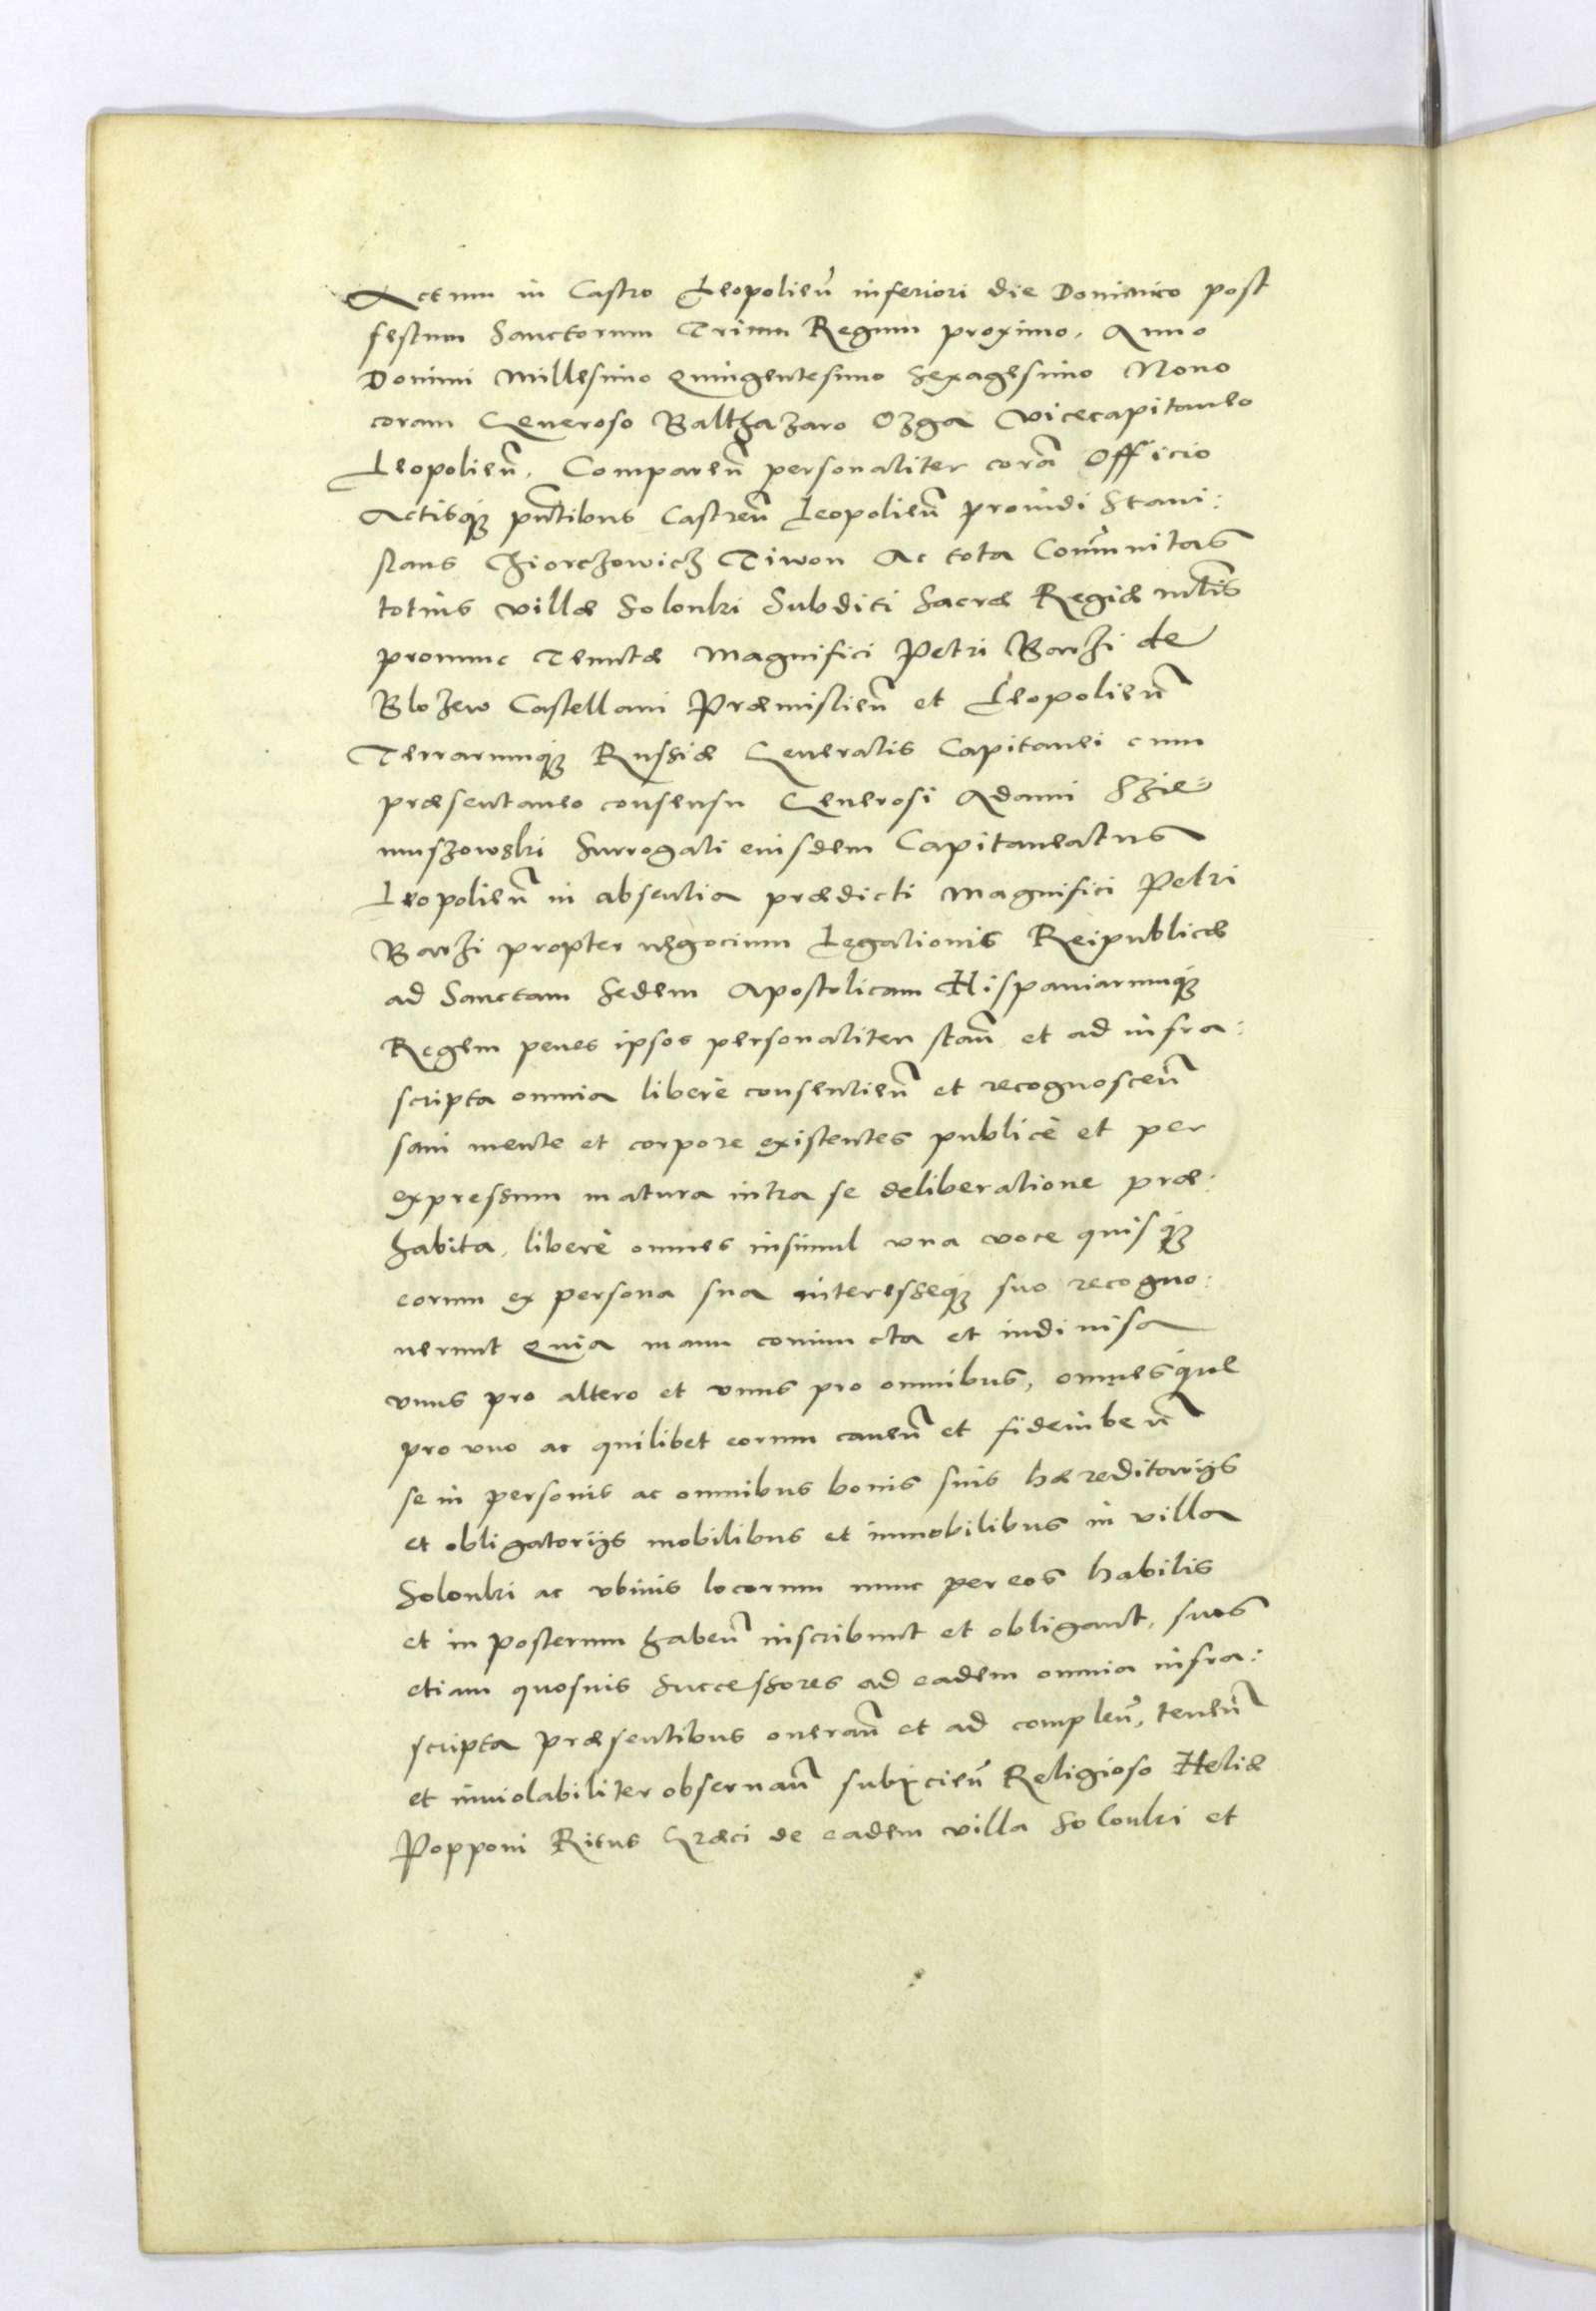 Actum in Castro Leopolien̄ inferiori die Dominico post
festum Sanctorum Trium Regum proximo. Anno
Domini Millesimo Quingentesimo Sexagesimo Nono
coram Generoso Balthazaro Ozga Vicecapitaneo
Leopolien̄. Comparen̄ personaliter corā Officio
Actisq; pn̄tibus Castren̄ Leopolien̄ prouidi Stani:
slaus Chiorczowicz Tiwon Ac tota Com̄unitas
totius villæ Solonki Subditi Sacræ Regiæ Mt̄is
pronunc Tenutæ Magnifici Petri Barzi de
Blozew Castellani Præmislien̄ et Leopolien̄
Terrarumq; Russiæ Generalis Capitanei cum
præsentaneo consensu Generosi Adami Szie=
muszowski Surrogati eiusdem Capitaneatus
Leopolien̄ in absentia prædicti Magnifici Petri
Barzi propter negocium Legationis Reipublicæ
ad Sanctam Sedem Apostolicam Hispaniarumq;
Regem penes ipsos personaliter stan̄ et ad infra:
scripta omnia liberè consentien̄ et recognoscen̄
sani mente et corpore existentes publicè et per
expressum matura intra se deliberatione præ:
habita, liberè omnes insimul vna voce quisq;
eorum ex persona sua interesseq; suo recogno:
uerunt Quia manu coniuncta et indiuisa
vnus pro altero et vnus pro omnibus, omnesque
pro vno ac quilibet eorum cauen̄ et fideiuben̄
se in personis ac omnibus bonis suis hæreditarijs
et obligatorijs mobilibus et immobilibus in villa
Solonki ac vbiuis locorum nunc per eos habitis
et in posterum haben̄ inscribunt et obligant, suos
etiam quosuis Successores ad eadem omnia infra:
scripta præsentibus oneran̄ et ad complen̄, tenen̄
et inuiolabiliter obseruan̄ subijcien̄ Religioso Heliæ
Popponi Ritus Græci de eadem villa Solonki et